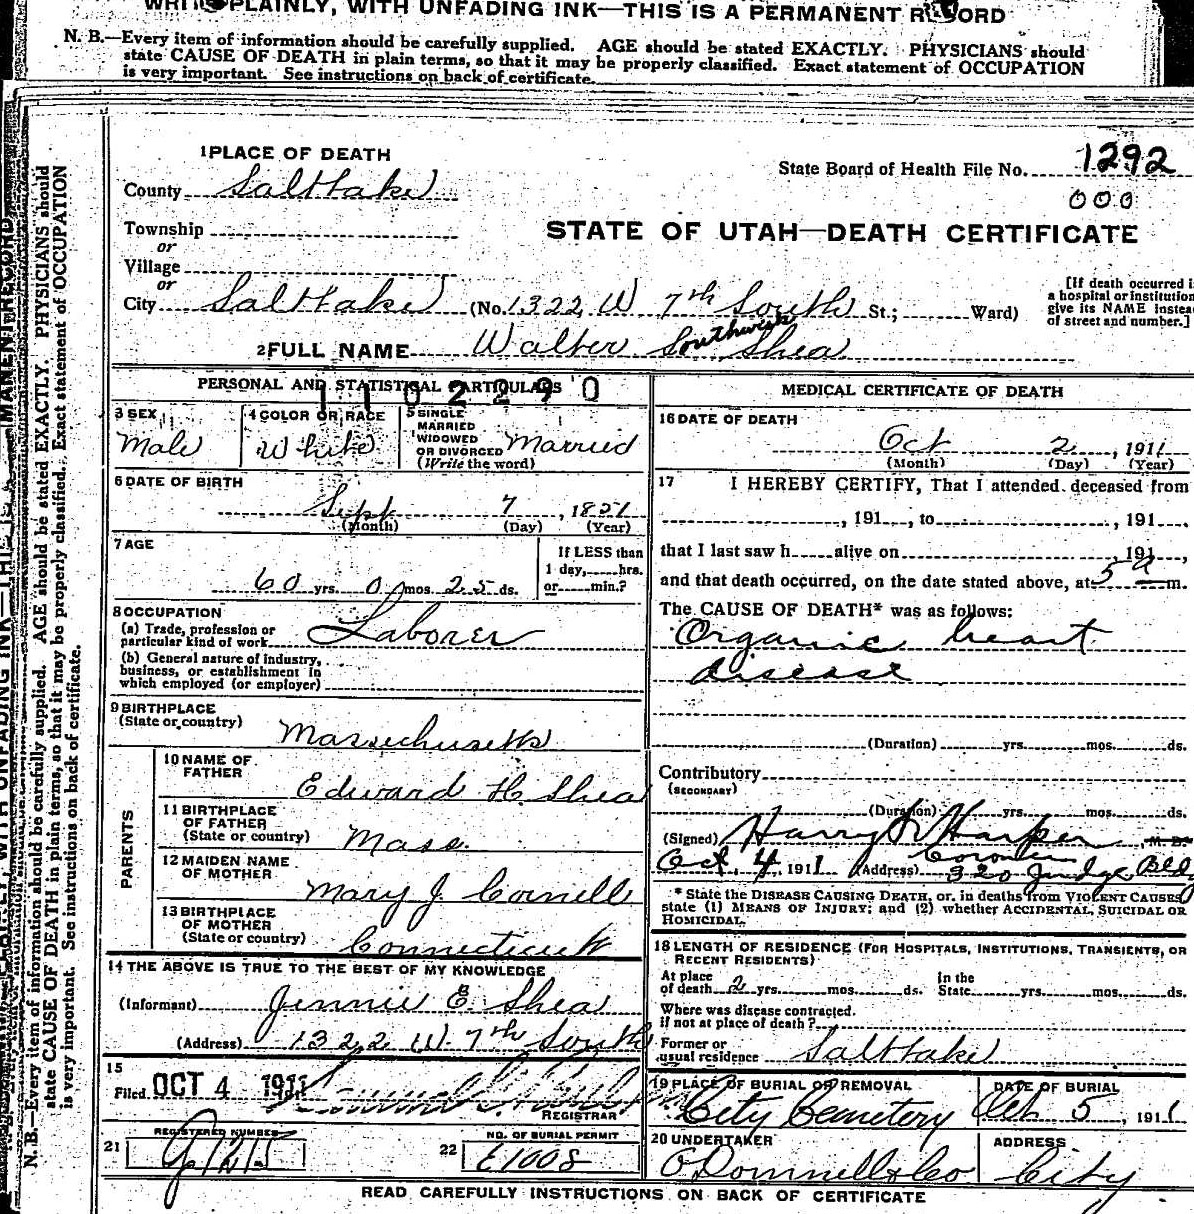 WRITE PLAINLY, WITH UNFADING INK—THIS IS A PERMANENT RECORD
N. B.—Every item of information should be carefully supplied. AGE should be stated EXACTLY. PHYSICIANS should
state CAUSE OF DEATH in plain terms, so that it may be properly classified. Exact statement of OCCUPATION
is very important. See instructions on back of certificate.
N. B.—Every item of information should be carefully supplied. AGE should be stated EXACTLY. PHYSICIANS should
state CAUSE OF DEATH in plain terms, so that it may be properly classified. Exact statement of OCCUPATION
is very important. See instructions on back of certificate.
1 PLACE OF DEATH
State Board of Health File No. 1292
000
County Salt Lake
STATE OF UTAH—DEATH CERTIFICATE
Township
or
Village
or
City Salt Lake (No. 1322 W 7th South St.; Ward)
[If death occurred i
a hospital or institution
give its NAME instea
of street and number.]
2 FULL NAME Walter Southwick Shea
PERSONAL AND STATISTICAL PARTICULARS
1102290
3 SEX
Male
4 COLOR OR RACE
White
5 SINGLE
MARRIED
WIDOWED
OR DIVORCED
(Write the word)
Married
6 DATE OF BIRTH
Sept 7, 1851
(Month) (Day) (Year)
7 AGE
60 yrs. 0 mos. 25 ds.
If LESS than
1 day, hrs.
or min.?
8 OCCUPATION
(a) Trade, profession or
particular kind of work Laborer
(b) General nature of industry,
business, or establishment in
which employed (or employer)
9 BIRTHPLACE
(State or country) Massachusetts
PARENTS
10 NAME OF
FATHER
Edward H. Shea
11 BIRTHPLACE
OF FATHER
(State or country) Mass.
12 MAIDEN NAME
OF MOTHER
Mary J. Cornell
13 BIRTHPLACE
OF MOTHER
(State or country) Connecticut
14 THE ABOVE IS TRUE TO THE BEST OF MY KNOWLEDGE
(Informant) Jennie E. Shea
(Address) 1322 W. 7th South
15
Filed OCT 4 1911
REGISTRAR
REGISTERED NUMBER
21
NO. OF BURIAL PERMIT
22 E1008
MEDICAL CERTIFICATE OF DEATH
16 DATE OF DEATH
Oct 2, 1911
(Month) (Day) (Year)
17 I HEREBY CERTIFY, That I attended deceased from
, 191 , to , 191 ,
that I last saw h alive on , 191 ,
and that death occurred, on the date stated above, at 5 a m.
The CAUSE OF DEATH* was as follows:
Organic heart
disease
(Duration) yrs. mos. ds.
Contributory
(SECONDARY)
(Duration) yrs. mos. ds.
(Signed) Harry Harper, M. D.
Coroner
Oct. 4 1911 (Address) 320 Judge Bldg
* State the DISEASE CAUSING DEATH, or, in deaths from VIOLENT CAUSES
state (1) MEANS OF INJURY; and (2) whether ACCIDENTAL, SUICIDAL OR
HOMICIDAL.
18 LENGTH OF RESIDENCE (FOR HOSPITALS, INSTITUTIONS, TRANSIENTS, OR
RECENT RESIDENTS)
At place
of death 2 yrs. mos. ds.
In the
State yrs. mos. ds.
Where was disease contracted.
if not at place of death?
Former or
usual residence Salt Lake
19 PLACE OF BURIAL OR REMOVAL
City Cemetery
DATE OF BURIAL
Oct 5, 1911
20 UNDERTAKER
O'Donnell & Co
ADDRESS
City
READ CAREFULLY INSTRUCTIONS ON BACK OF CERTIFICATE